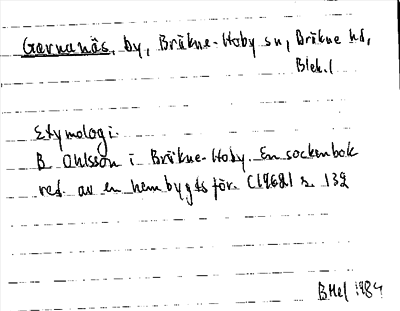 Garnanäs, by, Bräkne-Hoby sn, Bräkne hd,
Blek. l
Etymologi.
B. Ohlsson i Bräkne-Hoby. En sockenbok
red. av en hembygdsför. (1962) s. 132
BHel 1984